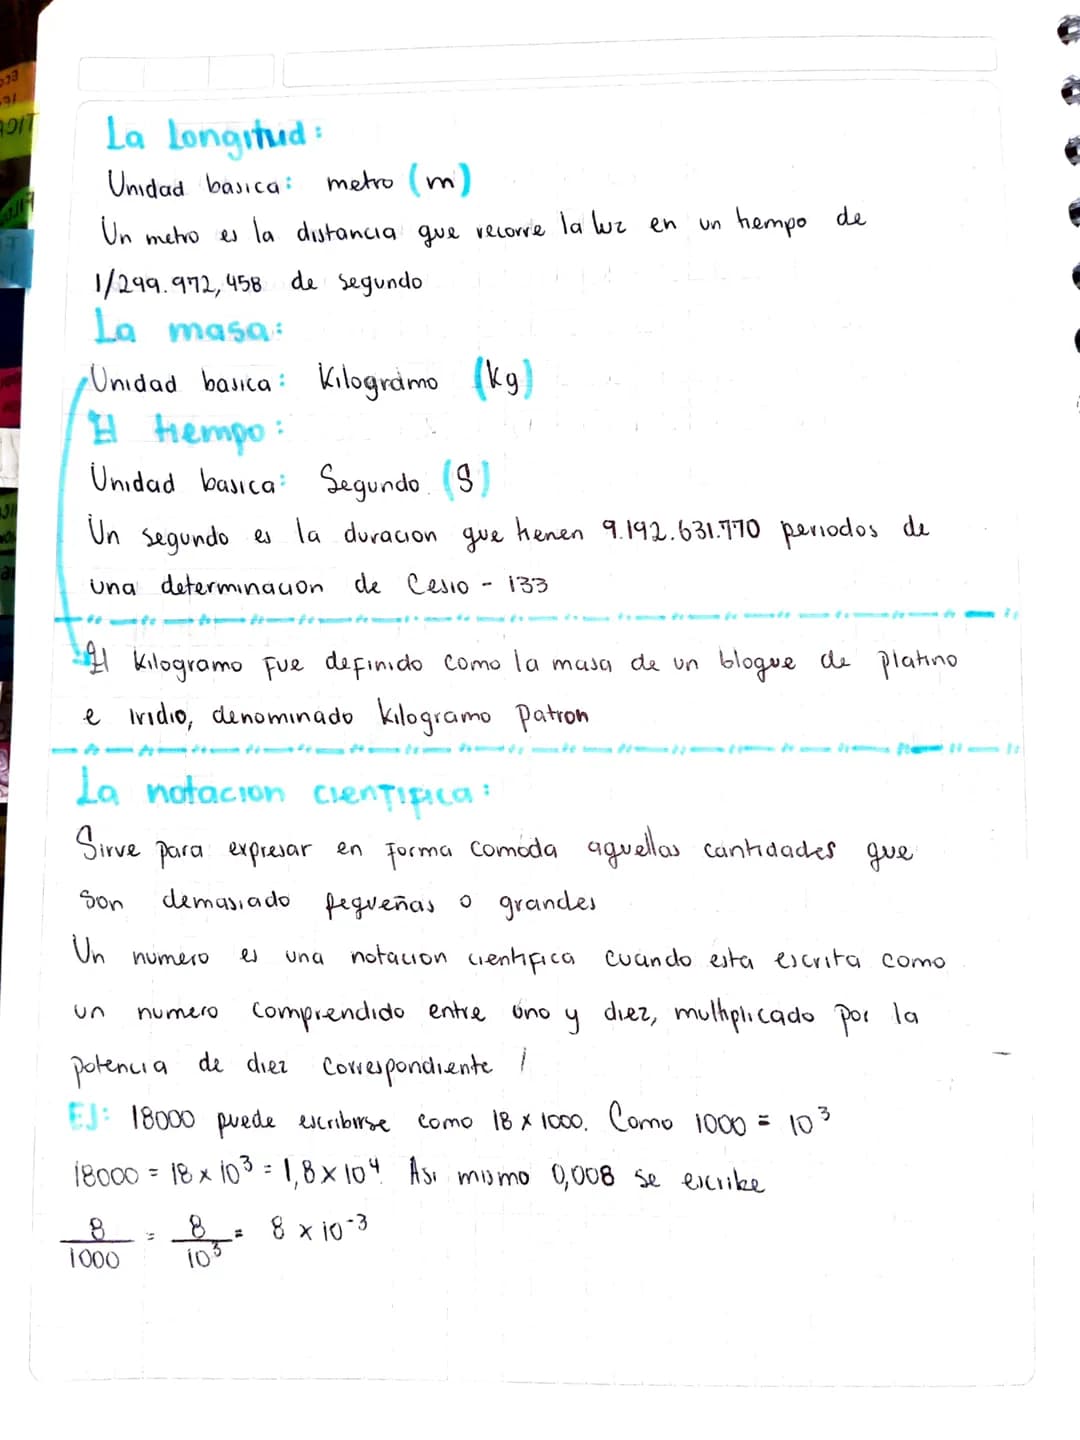 La Longitud:
Unidad basica: metro (m)
Un metro es la distancia que recorre la luz en un tiempo de
1/299.972,458 de segundo
La masa:
Unidad basica: Kilogramo (kg)
El tiempo:
Unidad basica: Segundo (S)
Un segundo es la duracion que tienen 9.192.631.770 periodos de
una determinacion de Cesio - 133
El kilogramo fue definido como la masa de un bloque de platino
e iridio, denominado kilogramo patron
La notacion cientifica:
Sirve para expresar en forma comoda aquellas cantidades que
son demasiado pequeñas o grandes
Un numero es una notacion cientifica cuando esta escrita como
un numero comprendido entre uno y diez, multiplicado por la
potencia de diez correspondiente
EJ: 18000 puede escribirse como 18 x 1000. Como 1000 = 10³
18000 = 18 x 10³ = 1,8 x 10⁴. Asi mismo 0,008 se escribe
8/1000 = 8/10³ = 8 x 10⁻³